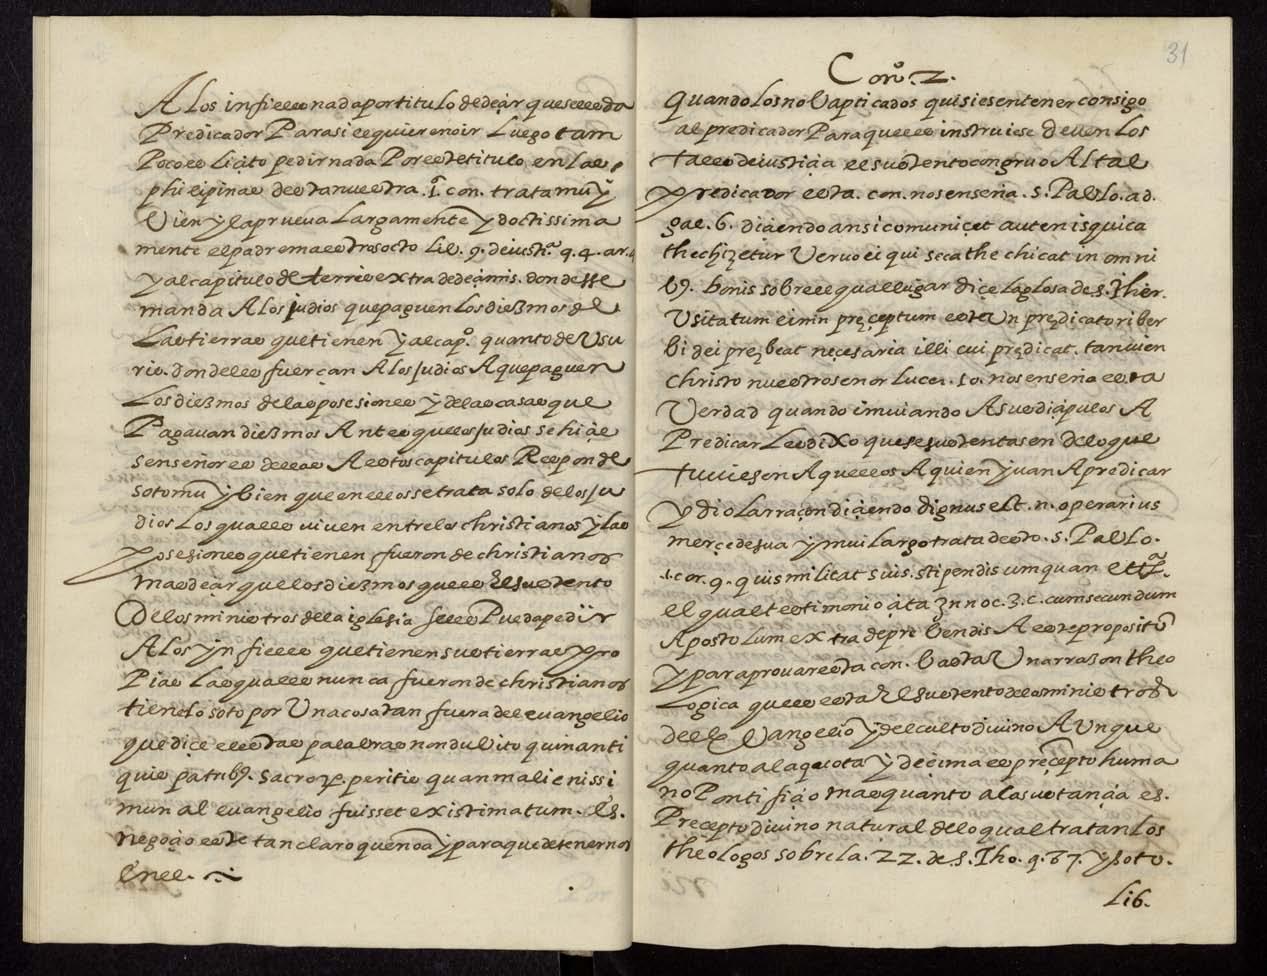 A los infieles nada por titulo de deçir que se les da
Predicador Para si le quieren oir Luego tam
Poco es liçito pedir nada Por este titulo en las
philipinas de esta nuestra .1ª con. trata muy
Vien y la prueva Largamente y doctissima
mente el padre maestro soto Lib. 9. de iusta. q. 4. ar. 4
y al capitulo de terris extra de deçimis. donde sse
manda A los judios que paguen los diezmos de
Las tierras que tienen y al capº. quanto de Usu
ris. donde les fuerçan A los judios A que paguen
Los diezmos de las posesiones y de las casas que
Pagauan diezmos Antes que los judios se hiçie
sen señores dellas A estos capitulos Responde
soto mui bien que en ellos se trata solo de los ju
dios Los quales viven entre los christianos y las
posesiones que tienen fueron de christianos
mas deçir que los diezmos que es el sustento
De los ministros de la iglesia se les Pueda pedir
A los ynfieles que tienen sus tierras pro
Pias Las quales nunca fueron de christianos
tienelo soto por Una cosa tan fuera del euangelio
que diçe estas palabras non dubito quin anti
quis patrib9. sacrorum. peritis quam alienissi
mun al euangelio fuisset existimatum. Es.
negoçio este tan claro que no ay para que detenernos
en el.
31
Corº. 2.
Quando los no Vapticados quisiesen tener consigo
al predicador Para que les instruiese deuen los
tales de iustiçia el sustento congruo Al tal
Predicador esta. con. nos enseña. S. Pablo. ad.
gal. 6. diçiendo ansi comunicet autem is qui ca
thechizetur Vervo ei qui se cathechicat in omni
b9. bonis sobre el qual lugar diçe la glosa de S. Iher.
Usitatum eimn preçeptum est Un predicatori ber
bi dei prebeat neçesaria illi cui predicat. tanvien
christo nuestro señor Lucę. 10. nos enseña esta
Verdad quando imviando A sus disçipulos A
Predicar Les dixo que se sustentasen de lo que
tuviesen Aquellos A quien yvan A predicar
y dio La rraçon diçiendo dignus est. n. operarius
merçede sua y mui largo trata desto. S. Pablo.
.1. cor. 9. quis militat suis. stipendis umquan etcª.
el qual testimonio çita Innoc. 3. c. cum secundum
Apostolum extra de prebendis A este propositº
y para provar esta con. basta Una rrazon theo
Logica que es esta El sustento de los ministros
del Evangelio y del culto divino Aunque
quanto a la quota y deçima es preçepto huma
no Pontifiçio mas quanto a la sustançia es.
Precepto divino natural de lo qual tratan los
theologos sobre la. 22. de. S. Tho. q. 87. y soto.
Lib.